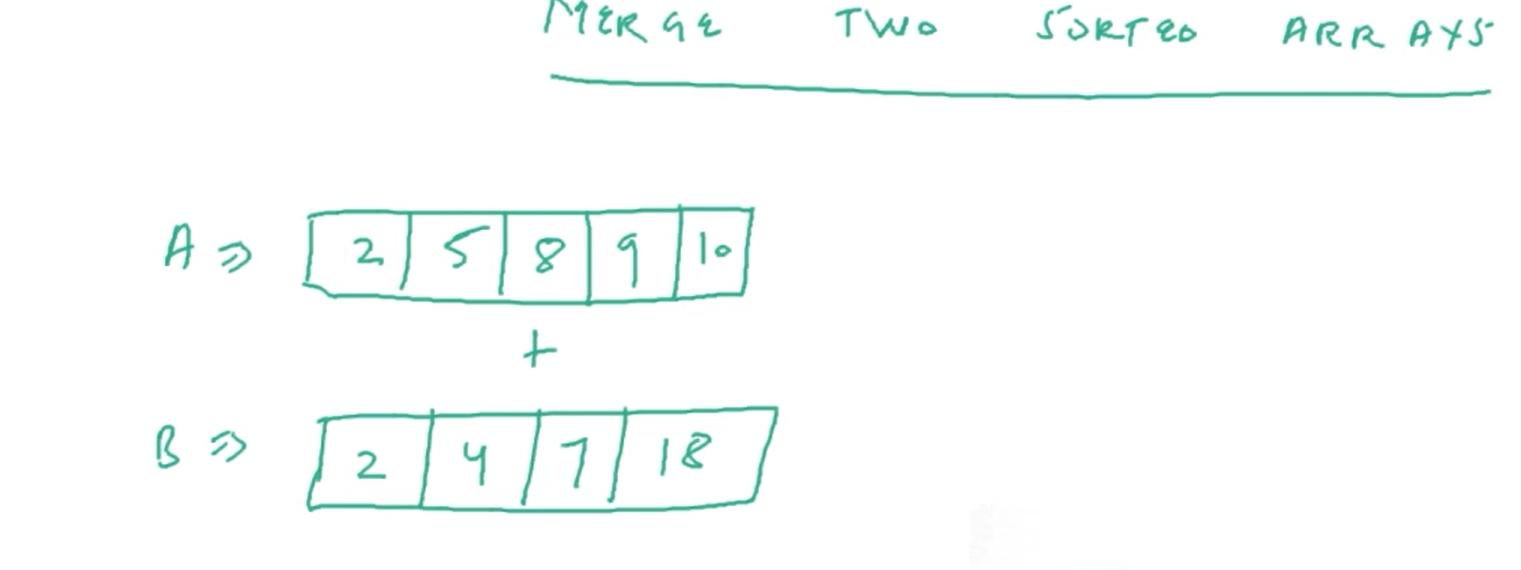 MERGE TWO SORTED ARRAYS
A ⇒ 2 5 8 9 10
+
B ⇒ 2 4 7 18